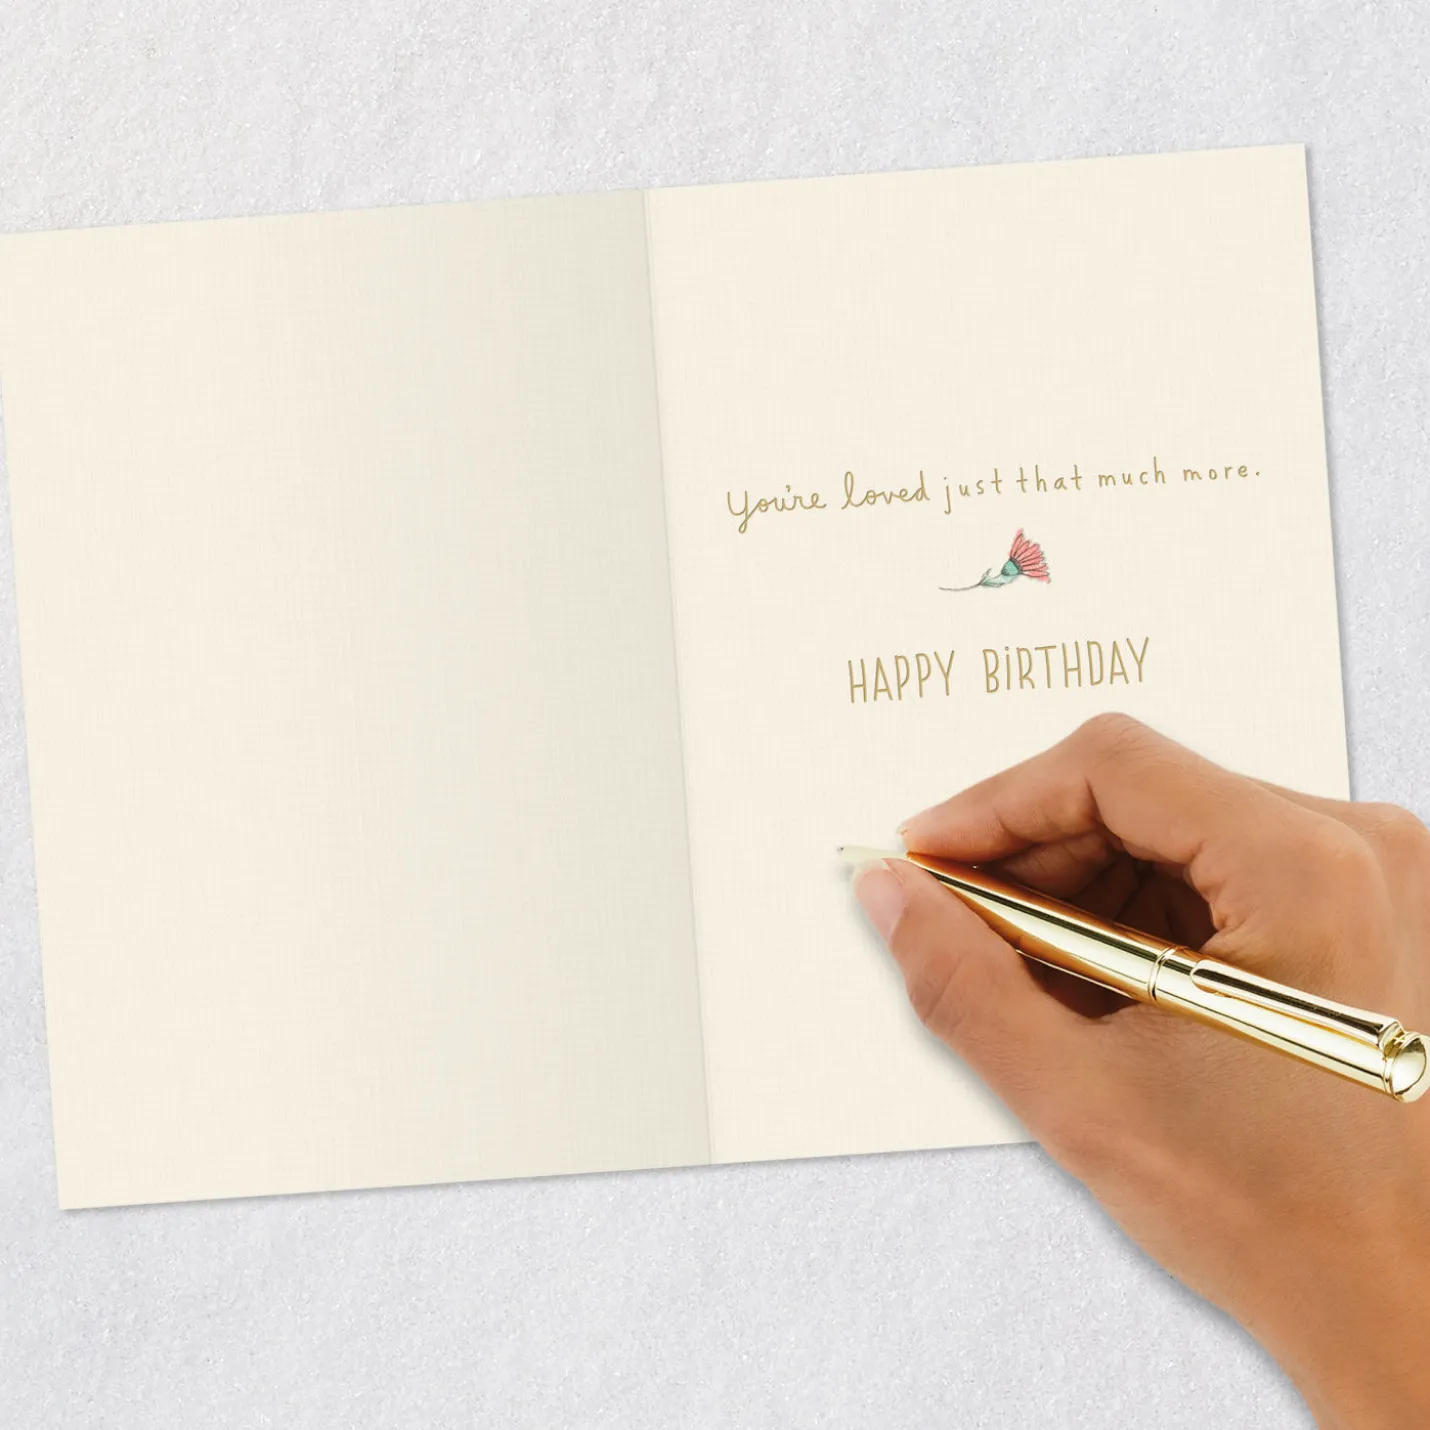 You're loved just that much more.
HAPPY BiRTHDAY